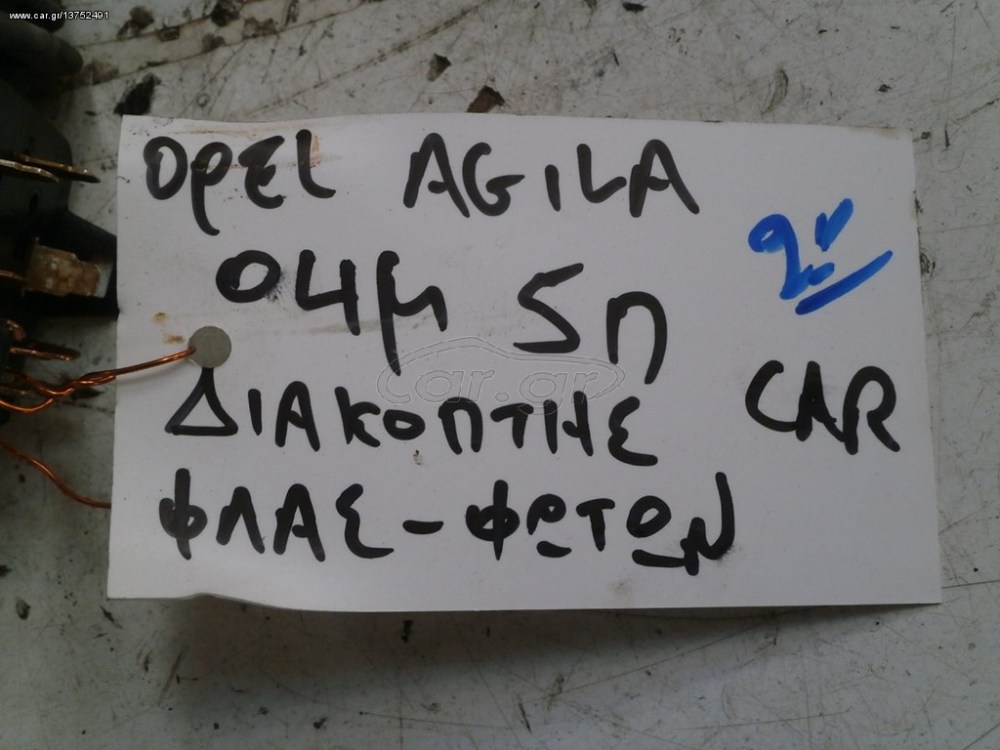 www.car.gr/13752491
OPEL AGILA
04μ 5Π
car.gr
ΔΙΑΚΟΠΤΗΣ CAR
ΦΛΑΣ-ΦΩΤΩΝ